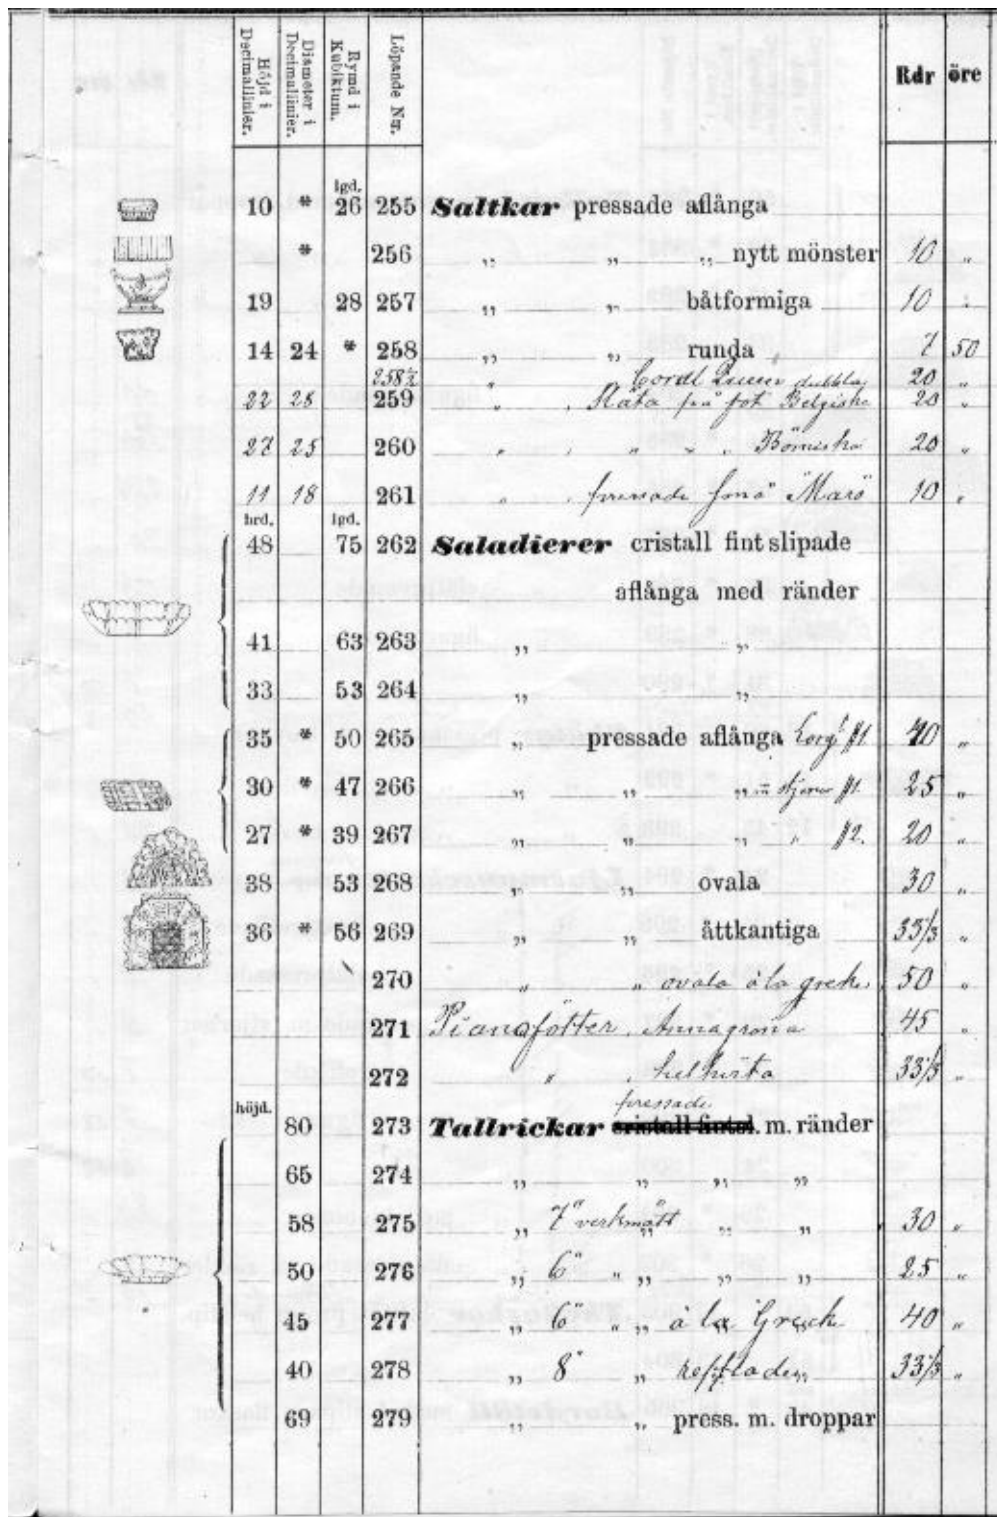 Höjd i Decimallinier. Diameter i Decimallinier. Rymd i Kubiktum. Löpande Nr. Rdr öre
lgd.
10 * 26 255 Saltkar pressade aflånga
* 256 „ „ „ nytt mönster 10 „
19 28 257 „ „ båtformiga 10 „
14 24 * 258 „ „ runda 7 50
258½ „ dubbla 20 „
22 28 259 „ „ Släta på fot Belgiska 20 „
27 25 260 „ „ „ „ „ Bömiska 20 „
11 18 261 „ „ pressade små Marö 10 „
brd. lgd.
48 75 262 Saladierer cristall fint slipade
aflånga med ränder
41 63 263 „ „
33 53 264 „ „
35 * 50 265 „ pressade aflånga #1. 40 „
30 * 47 266 „ „ „ m stjernor #1. 25 „
27 * 39 267 „ „ „ „ #2. 20 „
38 53 268 „ „ ovala 30 „
36 * 56 269 „ „ åttkantiga 33⅓ „
270 „ „ ovala à la grek 50 „
271 Pianofötter, Annagröna 45 „
272 „ „ helhvita 33⅓ „
höjd. pressade
80 273 Tallrickar cristall fintsl. m. ränder
65 274 „ „ „ „
58 275 „ 7" verkmått „ „ „ 30 „
50 276 „ 6" „ „ „ „ 25 „
45 277 „ 6" „ „ à la Greck 40 „
40 278 „ 8" „ refflade „ 33⅓ „
69 279 „ „ press. m. droppar